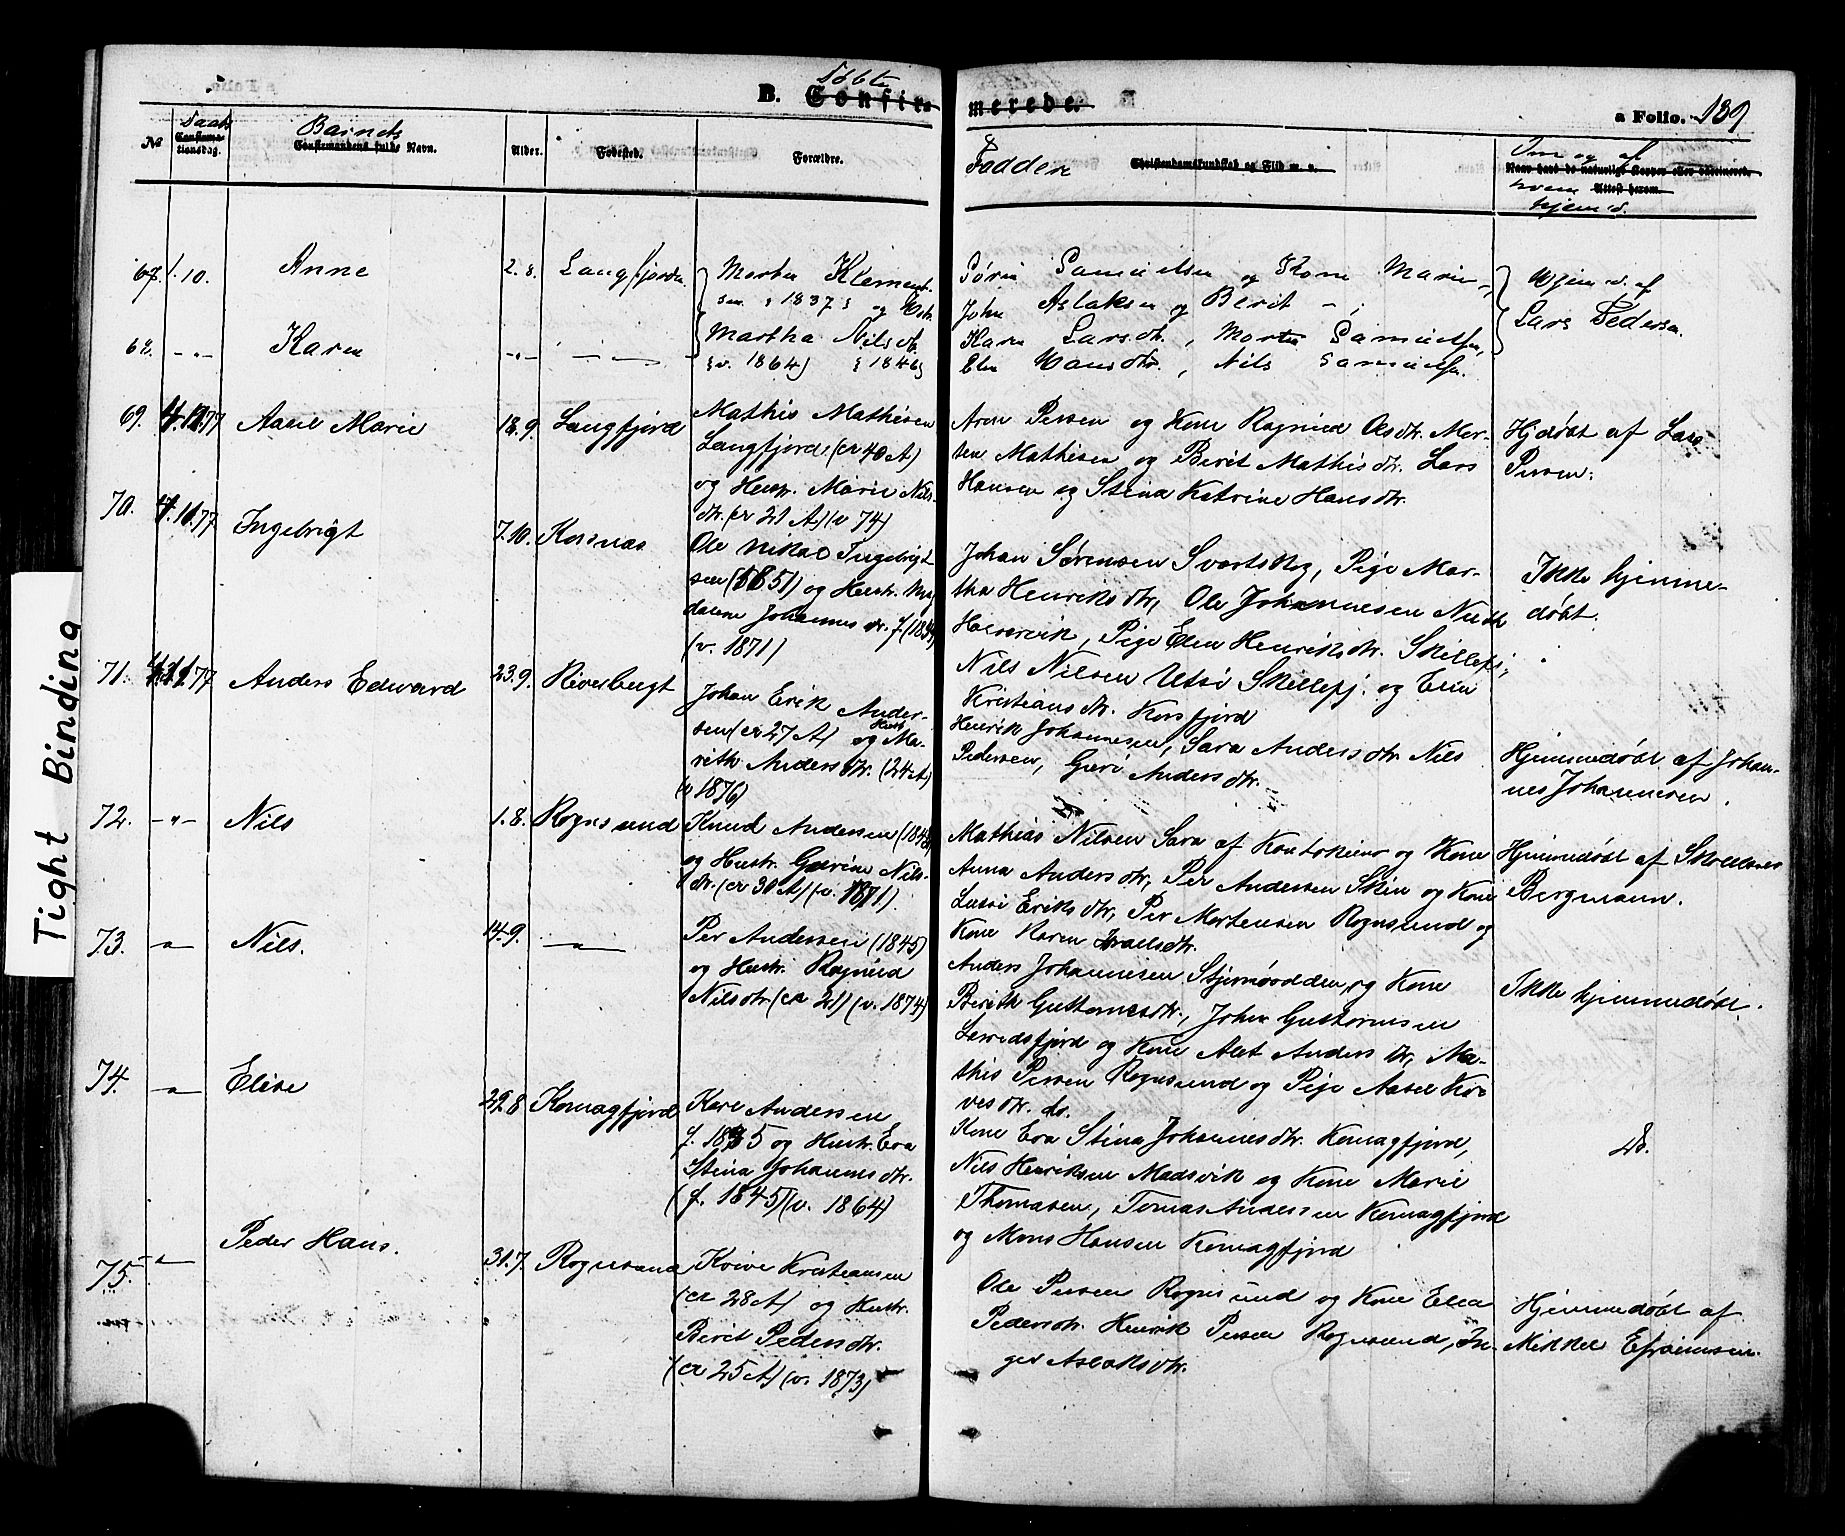 B. Døbte Confir-
merede.
a Folio. 139
№ Daab Confirmationsdag. Barnets Confirmandens fulde Navn. Alder. Fødested. Forældre.
Faddere Christendomskundskab og Flid m. v.
Om og af hvem hjemd. Navn hard de naturlige Kopper eller vaccineret. Attest herom.
67. 7.10. Anne 2.8. Langfjorden Morten Klement-
sen 1837 og Hstr.
Søren Samuelsen og Kone Marie
John Aslaksen og Berit
Hjemd. af
Lars Pedersen.
68. -"- Karen -"- Martha Nilsdtr.
(v. 1864) 1846
Karen Larsdtr., Morten Samuelsen,
Elen Hansdtr., Nils Samuelsen.
69. 4.11.77 Aasel Marie 18.9. Langfjord Mathis Mathisen
Langfjord (cr 40 A)
og Hustr. Marie Nils-
dtr. (cr 21 A) (v 74)
Aron Persen og Kone Ragnild Olsdtr. Mor-
ten Mathisen og Berit Mathisdtr. Lars
Hansen og Stina Katrine Hansdtr.
Hjdøbt af Lars
Persen.
70. 4.11.77 Ingebrigt 7.10. Korsnæs Ole Nikol Ingebrigt
sen (1851) og Hustr. Mag
dalena Johannesdtr. f.
(v. 1871)
Johan Sørensen Svartskog, Pige Mar-
tha Henriksdtr, Ole Johannesen
Pige Elen Henriksdtr. Skillefj.
Nils Nilsen Utsi Skillefj. og Elen
Kristiansdtr. Korsfjord
Ikke hjemme-
døbt.
71. 11.77 Anders Edward 23.9. Riverbugt Johan Erik Ander-
sen (cr 27 A) og Hust. Ma-
reth Andersdtr. (24 A)
(v 1876)
Henrik Johannesen, Sara Andersdtr. Nils
Pedersen, Guri Andersdtr.
Hjemmedøbt af Johan-
nes Johannesen.
72. -"- Nils 1.8. Rognsund Knud Andersen (1848)
og Hustr. Gurine Nils-
dtr. (cr 30 A) (v. 1871).
Mathias Nilsen Sara af Koutokeino og Kone
Anna Andersdtr, Per Andersen Skin og Kone
Lussi Eriksdtr, Per Mortensen Rognsund og
Kone Karen Israelsdtr.
Hjemmedøbt af
Bergmann.
73. " Nils. 14.9. " Per Andersen (1845)
og Hustr. Ragnild
Nilsdtr. (cr 21) (v. 1874)
Anders Johannesen Stjernøodden, og Kone
Berith Guttormsdtr., Johan Guttormsen
Leredsfjord og Kone Alet Andersdtr, Ma-
this Persen Rognsund og Pige Aasel Kre
vesdtr. do.
Ikke hjemmedøbt.
74. " Elise 29.8 Komagfjord Kare Andersen
f. 1835 og Hustr. Eva
Stina Johannesdtr.
(f. 1845) (v. 1864)
Kone Eva Stina Johannesdtr. Komagfjord,
Nils Henriksen Madsvik og Kone Marie
Thomasen, Tomas Andersen Komagfjord
og Mons Hansen Komagfjord
do.
75. " Peder Hans. 30.7. Rognsund Kreve Kristiansen
(cr 28 A) og Hustr.
Berit Pedersdtr.
(cr 25 A) (v. 1873)
Ole Persen Rognsund og Kone Elen
Pedersdtr. Henrik Persen Rognsund, In-
ger Aslaksdtr.
Hjemmedøbt af
Mikkel Efraimsen.
Tight Binding